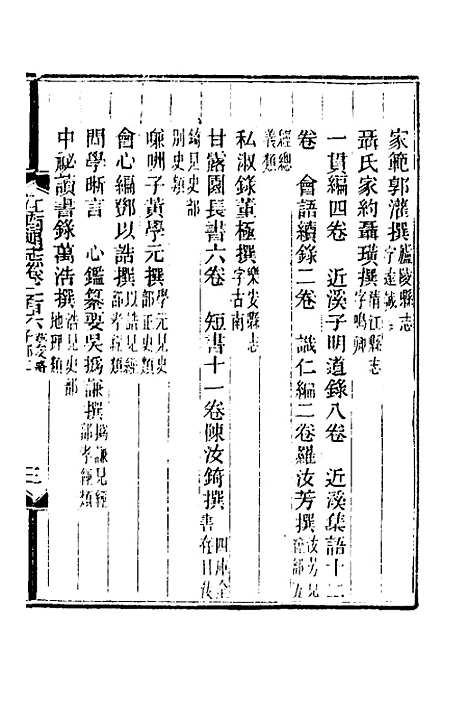 家範郭濰撰廬陵縣志字達誠
聶氏家約聶璜撰清江縣志字鳴卿
一貫編四卷 近溪子明道錄八卷 近溪集語十二
卷 會語續錄二卷 識仁編二卷羅汝芳撰汝芳見經部五
經總義類
私淑錄董極撰樂安縣志字古南
甘露園長書六卷 短書十一卷陳汝錡撰四庫全書存目汝
錡見史部別史類
嗛㘗子黃學元撰學元見史部正史類
會心編鄧以誥撰以誥見經部孝經類
問學晰言 心鑑纂要吳撝謙撰撝謙見經部孝經類
中祕讀書錄萬浩撰浩見史部地理類
卷一百六 藝文略 子部二 三